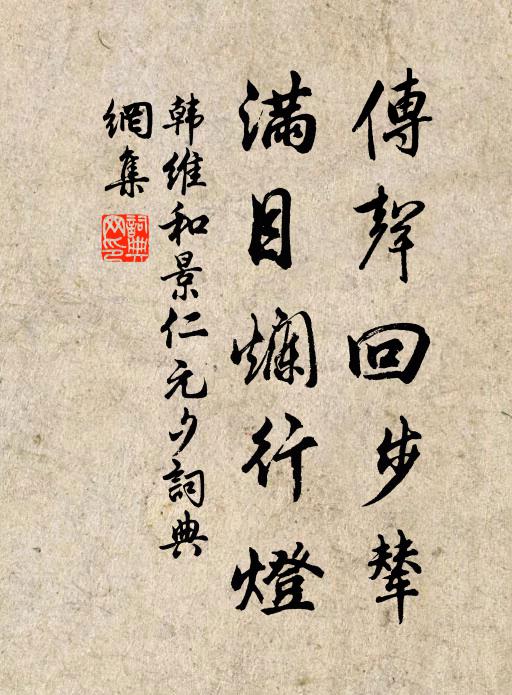 傳聲回步輦
滿目爛行燈
韩维和景仁元夕詞典
網集
詞典
网印